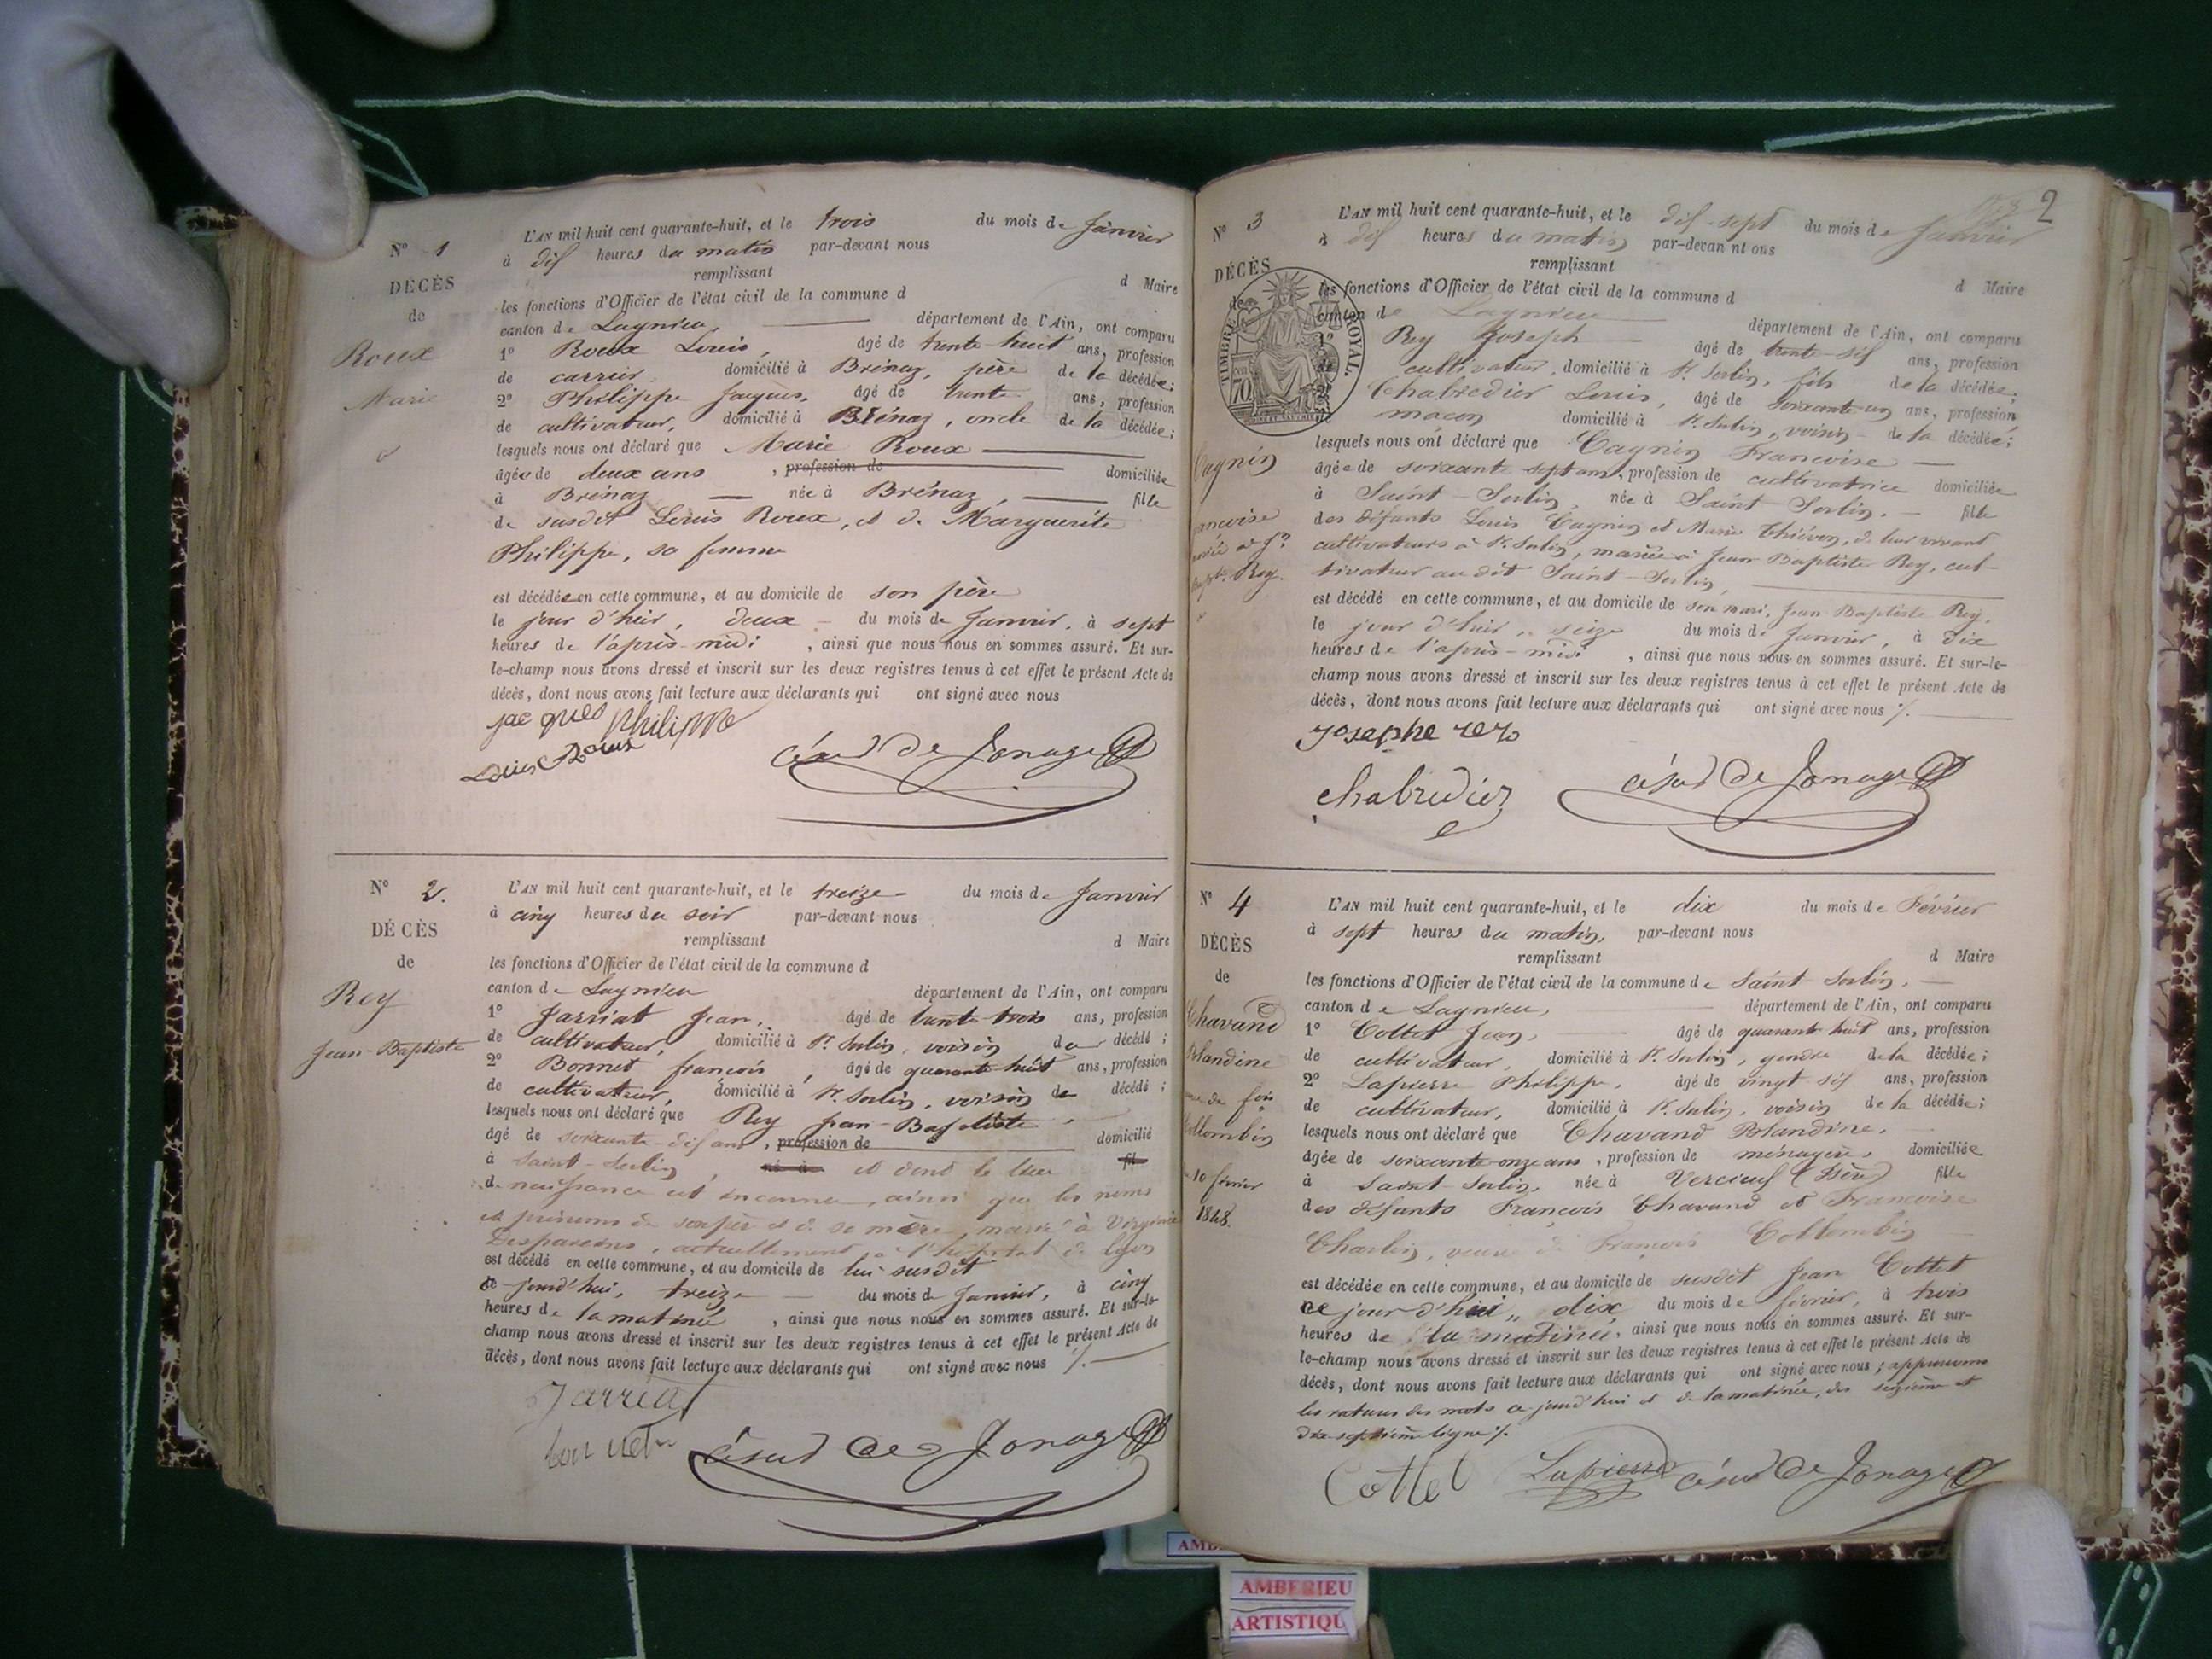 N° 1
DÉCÈS
de
Roux
Marie
L'AN mil huit cent quarante-huit, et le trois du mois de Janvier
à dix heures du matin par-devant nous
remplissant d Maire
les fonctions d'Officier de l'état civil de la commune d
canton de Lagnieu, département de l'Ain, ont comparu
1° Roux Louis, âgé de trente-huit ans, profession
de carrier, domicilié à Brénaz, père de la décédée;
2° Philippe Jacques, âgé de trente ans, profession
de cultivateur, domicilié à Brénaz, oncle de la décédée;
lesquels nous ont déclaré que Marie Roux
âgée de deux ans, profession de domiciliée
à Brénaz née à Brénaz, fille
de susdit Louis Roux, et de Marguerite
Philippe, sa femme
est décédée en cette commune, et au domicile de son père
le jour d'hier, deux du mois de Janvier, à sept
heures de l'après-midi, ainsi que nous nous en sommes assuré. Et sur-
le-champ nous avons dressé et inscrit sur les deux registres tenus à cet effet le présent Acte de
décès, dont nous avons fait lecture aux déclarants qui ont signé avec nous
jacques philippe
Louis Roux
césar de Jonage
N° 2.
DÉCÈS
de
Rey
Jean-Baptiste
L'AN mil huit cent quarante-huit, et le treize du mois de Janvier
à cinq heures du soir par-devant nous
remplissant d Maire
les fonctions d'Officier de l'état civil de la commune d
canton de Lagnieu département de l'Ain, ont comparu
1° Jarriat Jean, âgé de trente-trois ans, profession
de cultivateur, domicilié à St. Sorlin, voisin du décédé;
2° Bonnet françois, âgé de quarante huit ans, profession
de cultivateur, domicilié à St. Sorlin, voisin du décédé;
lesquels nous ont déclaré que Rey Jean-Baptiste,
âgé de soixante-dix ans, profession de domicilié
à Saint-Sorlin, né à et dont le lieu fil
de naissance est inconnu, ainsi que les noms
et prénoms de son père et de sa mère, marié à Virginie
actuellement à l'hôpital de Lyon
est décédé en cette commune, et au domicile de lui susdit
ce jourd'hui, treize du mois de Janvier, à cinq
heures de la matinée, ainsi que nous nous en sommes assuré. Et sur-le-
champ nous avons dressé et inscrit sur les deux registres tenus à cet effet le présent Acte de
décès, dont nous avons fait lecture aux déclarants qui ont signé avec nous ./.
Jarriat
bonnet
césar de Jonage
2
N° 3
DÉCÈS
de
TIMBRE ROYAL.
70
Cagnin
ancoise
mariée à Jn
Bapt. Rey.
L'AN mil huit cent quarante-huit, et le dix-sept du mois de Janvier
à dix heures du matin par-devan nt ous
remplissant d Maire
les fonctions d'Officier de l'état civil de la commune d
canton de Lagnieu département de l'Ain, ont comparu
1° Rey Joseph âgé de trente-six ans, profession
de cultivateur, domicilié à St. Sorlin, fils de la décédée;
2° Chabredier Louis, âgé de soixante-un ans, profession
maçon domicilié à St. Sorlin, voisin de la décédée;
lesquels nous ont déclaré que Cagnin Francoise
âgée de soixante sept ans, profession de cultivatrice domiciliée
à Saint-Sorlin, née à Saint-Sorlin. fille
des défunts Louis Cagnin et Marie Thiévon, de leur vivant
cultivateurs à St. Sorlin, mariée à Jean Baptiste Rey, cul-
tivateur au dit Saint-Sorlin,
est décédé en cette commune, et au domicile de son mari, Jean Baptiste Rey,
le jour d'hier, seize du mois de Janvier, à dix
heures de l'après-midi, ainsi que nous nous en sommes assuré. Et sur-le-
champ nous avons dressé et inscrit sur les deux registres tenus à cet effet le présent Acte de
décès, dont nous avons fait lecture aux déclarants qui ont signé avec nous ./.
Josephe rey
chabredier
césar de Jonage
N° 4
DÉCÈS
de
Chavand
Blandine
uve de fois
Collombin
10 février
1848.
L'AN mil huit cent quarante-huit, et le dix du mois de Février
à sept heures du matin, par-devant nous
remplissant d Maire
les fonctions d'Officier de l'état civil de la commune de Saint Sorlin,
canton de Lagnieu, département de l'Ain, ont comparu
1° Cottet Jean, âgé de quarante huit ans, profession
de cultivateur, domicilié à St. Sorlin, gendre de la décédée;
2° Lapierre Philippe, âgé de vingt six ans, profession
de cultivateur, domicilié à St. Sorlin, voisin de la décédée;
lesquels nous ont déclaré que Chavand Blandine,
âgée de soixante-onze ans, profession de ménagère, domiciliée
à Saint-Sorlin, née à Vercieu (Isère) fille
des défunts François Chavand et Francoise
Charlin, veuve de François Collombin
est décédée en cette commune, et au domicile de susdit Jean Cottet
ce jour d'hui, dix du mois de février, à trois
heures de la matinée, ainsi que nous nous en sommes assuré. Et sur-
le-champ nous avons dressé et inscrit sur les deux registres tenus à cet effet le présent Acte de
décès, dont nous avons fait lecture aux déclarants qui ont signé avec nous; approuvons
les ratures des mots ce jourd'hui et de la matinée, des seizième et
dix-septième ligne ./.
Cottet Lapierre césar de Jonage
AMBERIEU
ARTISTIQU